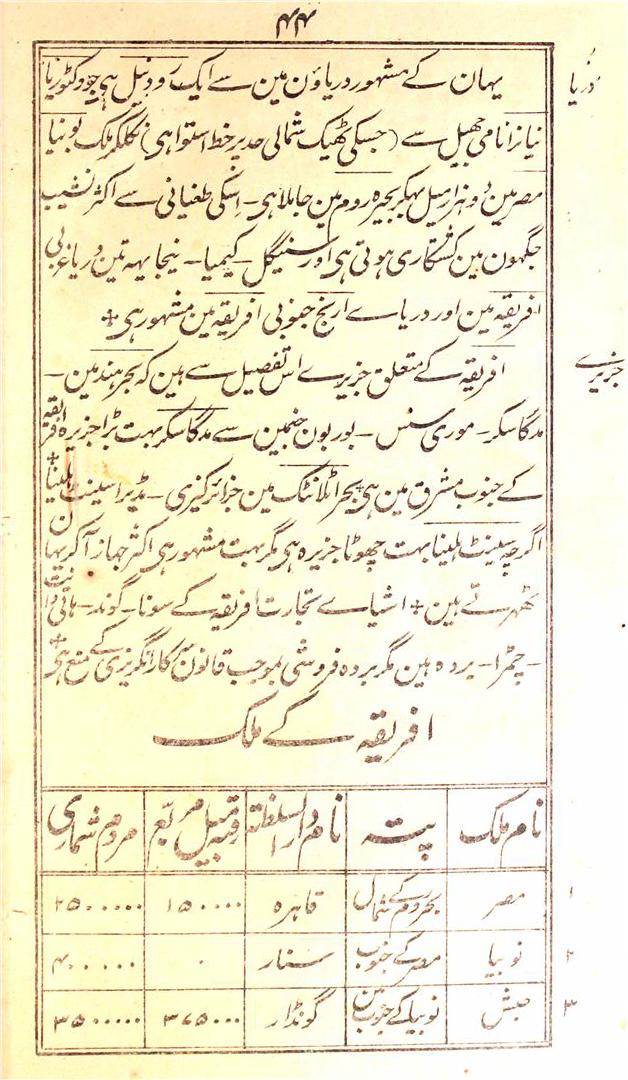 ۴۴
دریا
یہان کے مشہور دریاؤن مین سے ایک رود نیل ہی جو وکٹوریا
نیانزا نامی جھیل سے (جسکی ٹھیک شمالی حد پر خط استوا ہی) نکلکر ملک نوبیا
مصر مین دو ہزار میل بہکر بحیرہ روم مین جا ملا ہی - اسکی طغیانی سے اکثر نشیب
جگہون مین کشتکاری ہوتی ہی اور سنیگل - کیمیا - نیجا یہہ تین دریا غربی
افریقہ مین اور دریاے ارنج جنوبی افریقہ مین مشہور ہی +
جزیرے
افریقہ کے متعلق جزیرے اس تفصیل سے ہین کہ بحر ہند مین -
مدگاسکر - موری سس - بوربون جنمین سے مدگاسکر بہت بڑا جزیرہ افریقہ
کے جنوب مشرق مین ہی + بحر اٹلانٹک مین جزائر کنیری - مڈیرا سینٹ ہلینا +
اگرچہ سینٹ ہلینا بہت چھوٹا جزیرہ ہی مگر بہت مشہور ہی اکثر جہاز آکر یہان
ٹھہرتے ہین + اشیاے تجارت افریقہ کے سونا - گوند - ہاتی دانت
- چمڑا - بردہ ہین مگر بردہ فروشی بموجب قانون سرکار انگریزی کے منع ہی +
افریقہ کے ملک
نام ملک | پتہ | نام دار السلطنة | رقبہ میل مربع | مردم شماری
۱ | مصر | بحر روم کے شمال | قاہرہ | ۱۵۰۰۰۰ | ۲۵۰۰۰۰۰
۲ | نوبیا | مصر کے جنوب | سنار | ۰ | ۴۰۰۰۰۰
۳ | حبش | نوبیا کے جنوب مین | گونڈار | ۳۶۵۰۰۰ | ۳۵۰۰۰۰۰